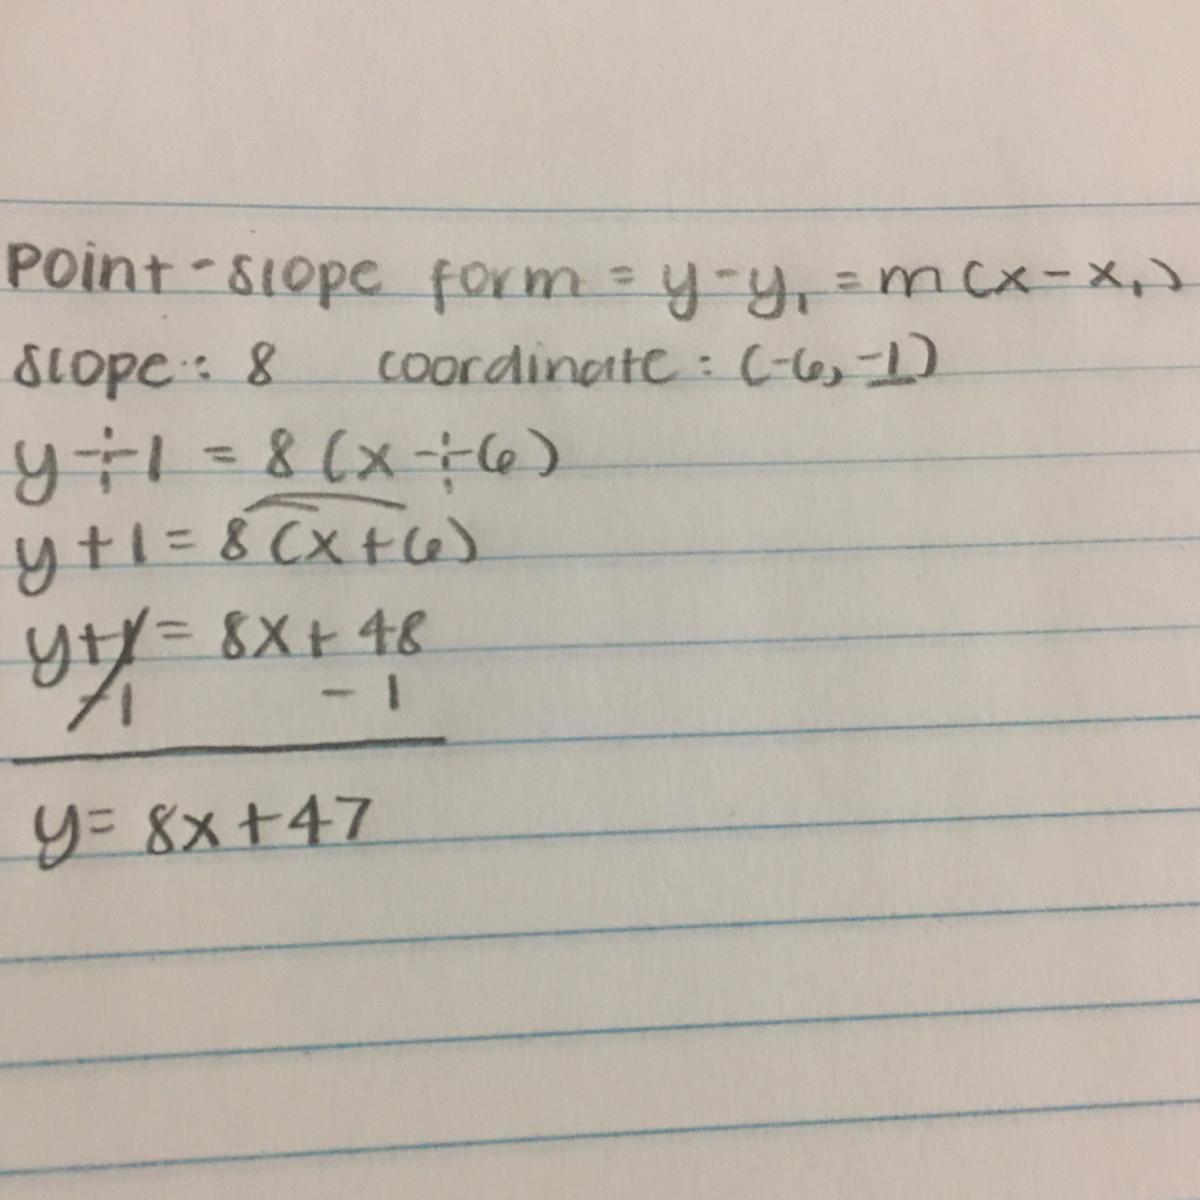 Point-slope form = y-y₁ = m(x-x₁)
slope: 8 coordinate: (-6, -1)
y--1 = 8(x--6)
y+1 = 8(x+6)
y+1 = 8x+ 48
-1 - 1
y= 8x+47